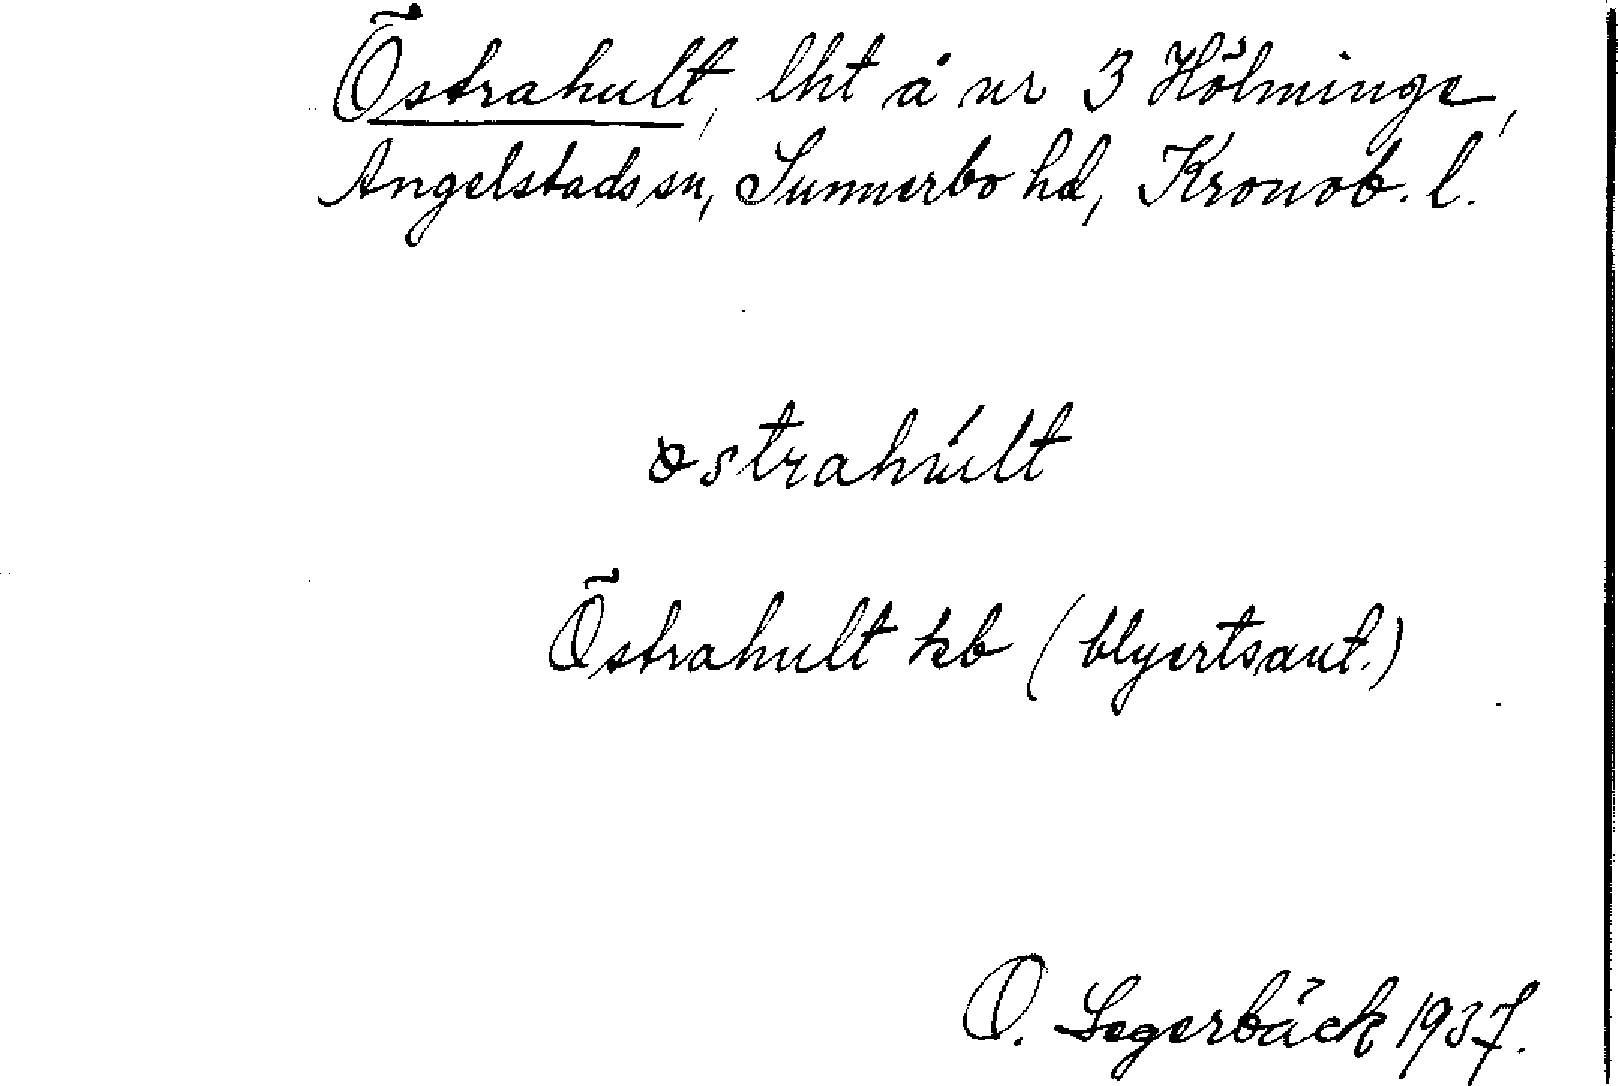 Östrahult, lht å nr 3 Hölminge,
Angelstads sn, Sunnerbo hd, Kronob. l.
østrahúlt
Östrahult kb (blyertsant.)
O. Segerbäck 1937.